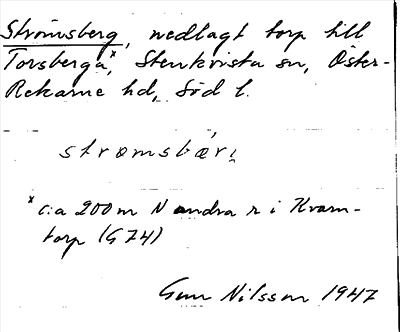 Strömsberg, nedlagt torp till
Torsberga x, Stenkvista sn, Öster-
Rekarne hd, Söd l.
strømsbær̨
x c:a 200 m N andra r i Kvarn-
torp (G 74)
Gun Nilsson 1947